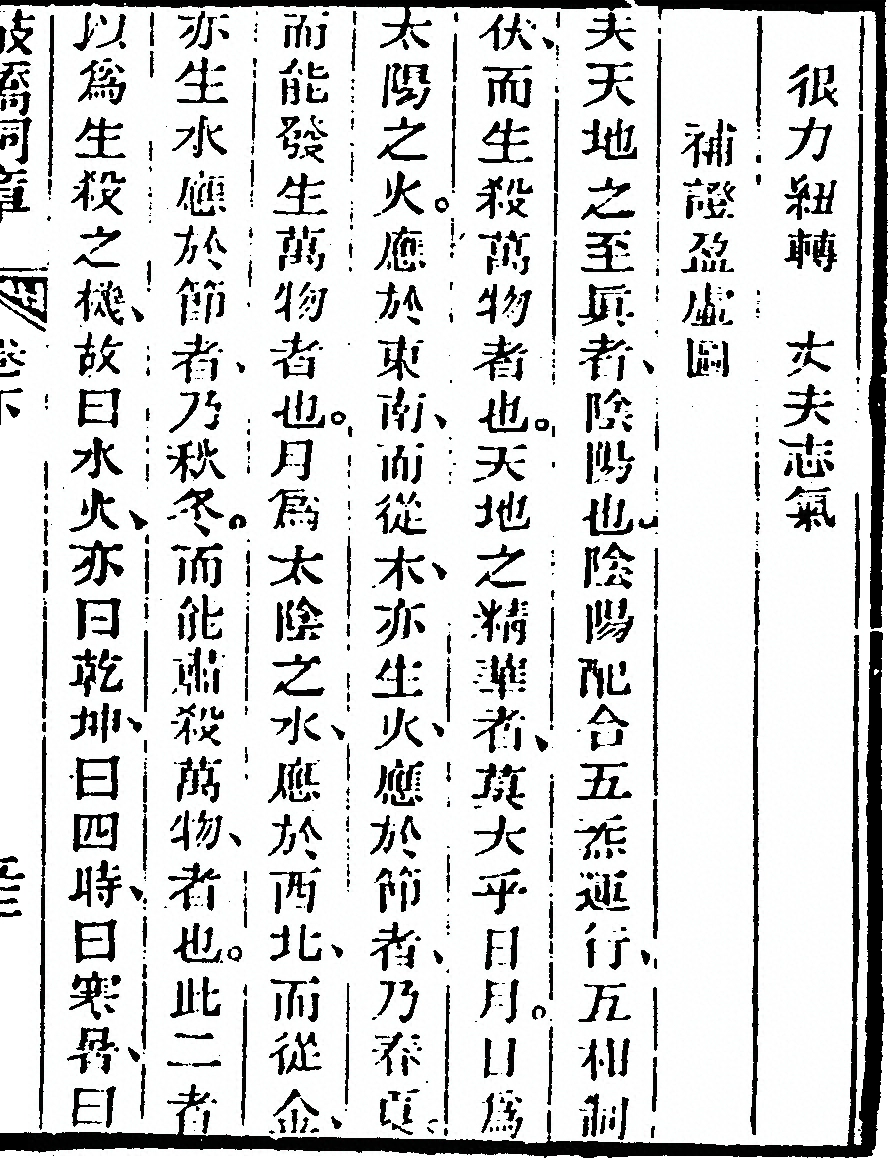 很力紐轉　丈夫志氣
補證盈虛圖
夫天地之至眞者、陰陽也。陰陽配合五炁運行、五相制
伏、而生殺萬物者也。天地之精華者、莫大乎日月。日爲
太陽之火。應於東南、而從木、亦生火、應於節者、乃春夏。
而能發生萬物者也。月爲太陰之水、應於西北、而從金、
亦生水應於節者、乃秋冬。而能肅殺萬物、者也。此二者
以爲生殺之機、故曰水火、亦曰乾坤、曰四時、曰寒暑、曰
卷下